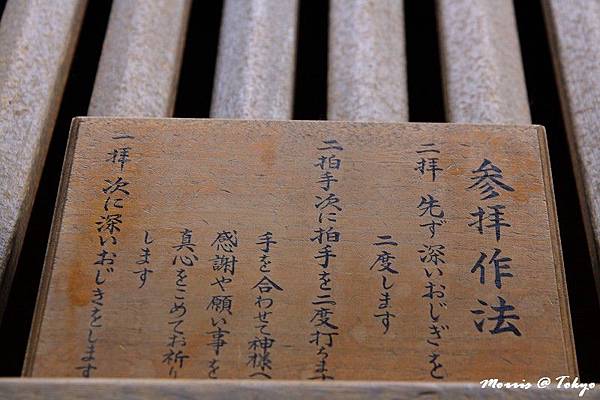 参拝作法
二拝 先ず深いおじぎを
二度します
二拍手 次に拍手を二度打ちます
手を合わせて神様へ
感謝や願い事を
真心をこめてお祈り
します
一拝 次に深いおじぎをします
Morris @ Tokyo